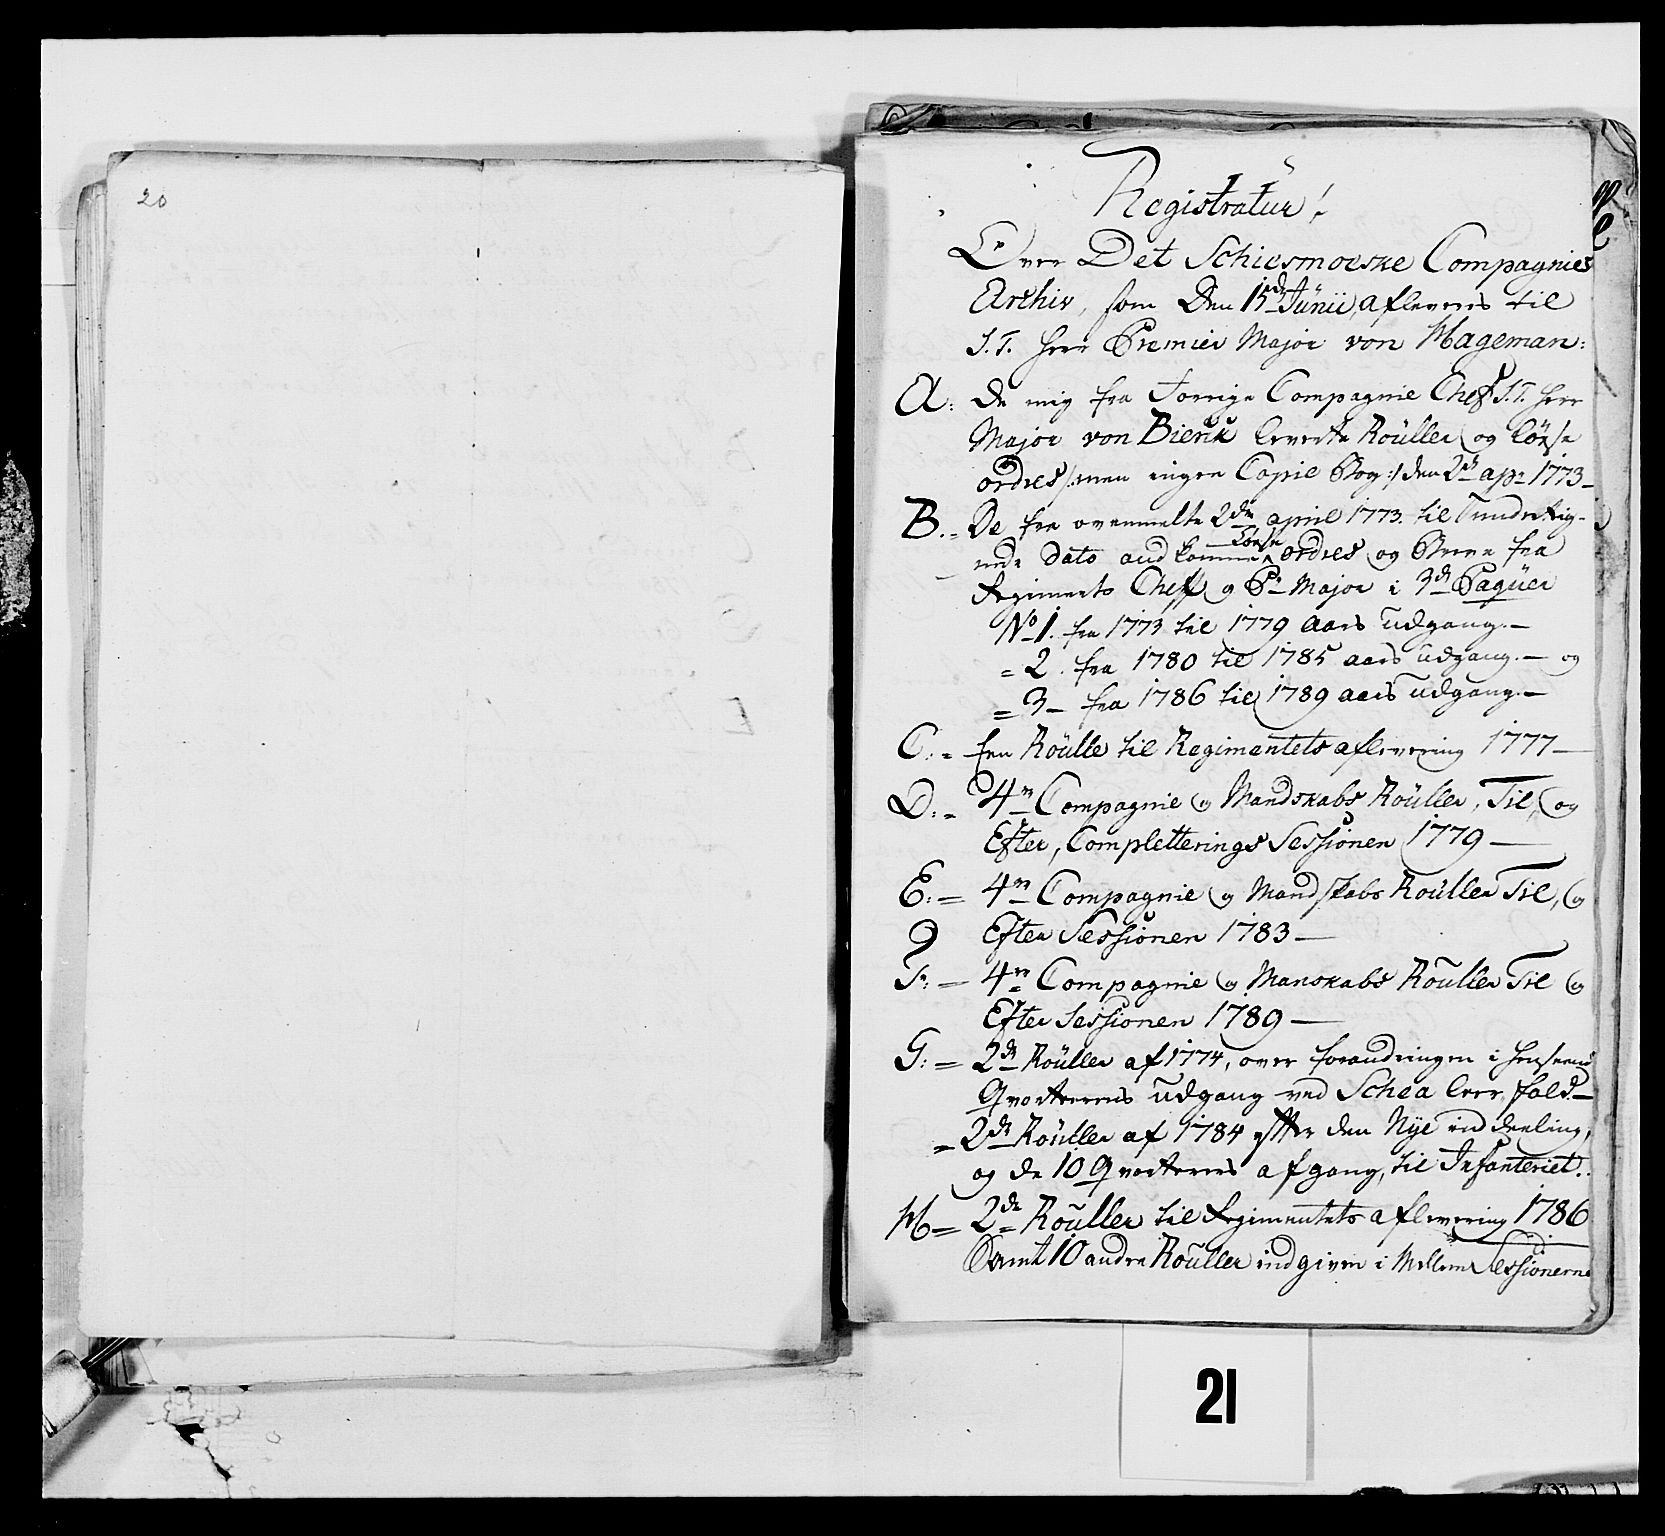 20
Registratur!
Over Det Schiesmoeske Compagnies
Archiv, som Den 15de Junii, afleveres til
S. T. Herr Premier Major von Hageman:
A: De mig fra forrige Compagnie Chef S. T. Herr
Major von Bierik leverte Roüller og Løse
ordres /: men ingen Copie Bog :/ den 2de ap: 1773 –
B. = De fra ovenmelte 2den april 1773. til underteg-
nede Dato ankommen
Løse
ordres og Breve fra
Regiments Cheff og Pr: Major i 3de Paquer
No 1. fra 1773 til 1779 aars udgang. –
= 2. fra 1780 til 1785 aars udgang. – og
= 3 – fra 1786 til 1789 aars udgang. –
C. = Een Roülle til Regimentets aflevering 1777 –
D: = 4re Compagnie og Mandskabs Roüller, Til, og
Efter, Completterings Sessionen 1779 –
E: = 4re Compagnie og Mandskabs Roüller Til, og
Efter Sessionen 1783 –
F: = 4re Compagnie og Manskabs Roüller Til og
Efter Sessionen 1789 –
G: = 2de Roüller af 1774, over forandringen i Henseende
Qvarterens udgang ved Schea leer fald –
= 2de Roüller af 1784 efter den Nÿe inddeeling,
og de 10 Qvarterers afgang, til Infanteriet.
H = 2de Roüller til Regimentets aflevering 1786
Samt 10 andre Roüller indgiven i Mellem Sessionerne
21